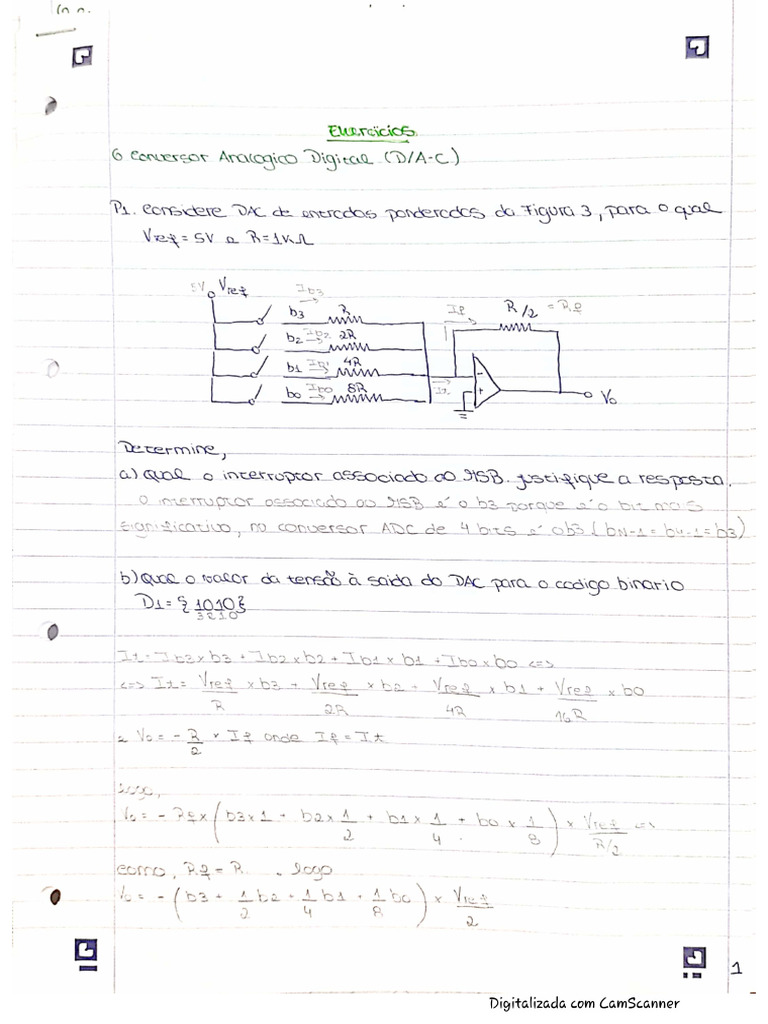 Exercícios.
6 Conversor Analogico Digital (D/A-C)
P1. Considere DAC de entradas ponderadas da Figura 3, para o qual
Vref = 5V e R=1KΩ
5V Vref
Ib3
b3 R
Ib2
b2 2R
Ib1
b1 4R
Ib0
b0 8R
If
R/2 = Rf
It
-
+
Vo
Determine,
a) Qual o interruptor associado ao MSB. justifique a resposta.
O interruptor associado ao MSB é o b3 porque é o bit mais
significativo, no conversor ADC de 4 bits é o b3 (bN-1 = b4-1 = b3)
b) Qual o valor da tensão à saida do DAC para o codigo binario
D1 = {1010}
3210
It = Ib3 x b3 + Ib2 x b2 + Ib1 x b1 + Ib0 x b0 <=>
<=> It = Vref/R x b3 + Vref/2R x b2 + Vref/4R x b1 + Vref/16R x b0
e Vo = - R/2 x If onde If = It
logo,
Vo = - Rf x (b3 x 1 + b2 x 1/2 + b1 x 1/4 + b0 x 1/8) x Vref/R/2 <=>
como, Rf = R , logo
Vo = - (b3 + 1/2 b2 + 1/4 b1 + 1/8 b0) x Vref/2
1
Digitalizada com CamScanner